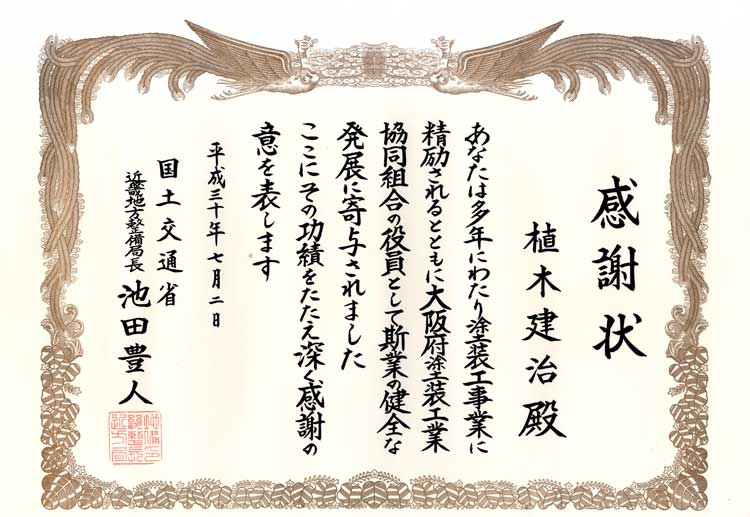 感謝状
植木建治殿
あなたは多年にわたり塗装工事業に
精励されるとともに大阪府塗装工業
協同組合の役員として斯業の健全な
発展に寄与されました
ここにその功績をたたえ深く感謝の
意を表します
平成三十年七月二日
国土交通省
近畿地方整備局長
池田豊人